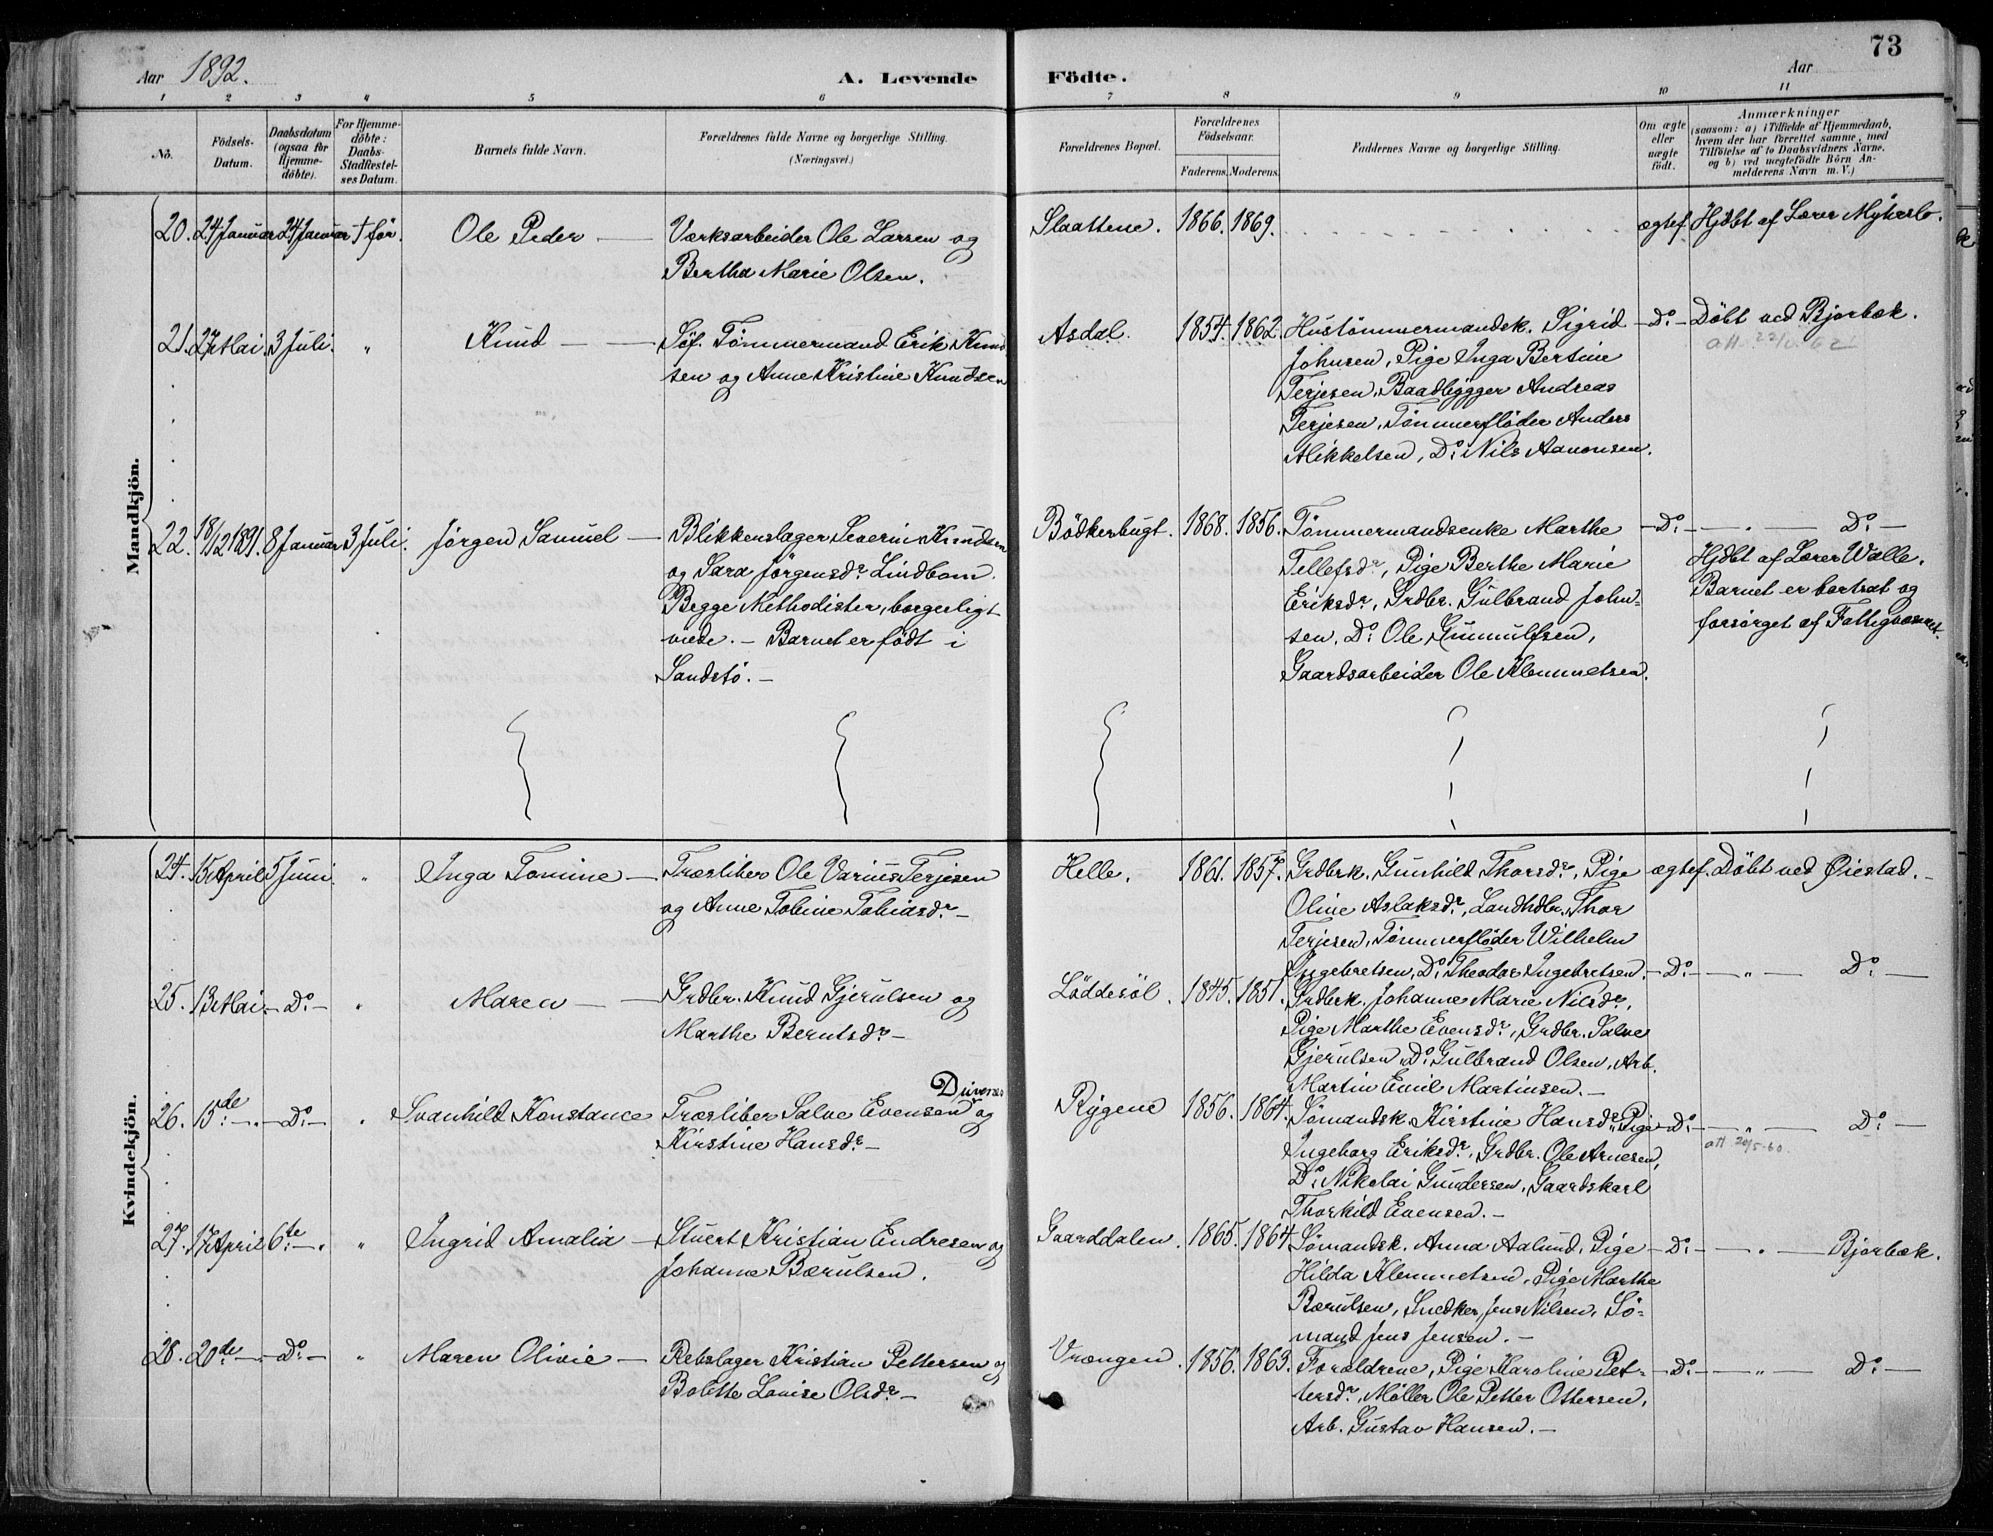 73
Aar 1892.
A. Levende
Födte.
Aar
1 2 3 4 5 6 7 8 9 10 11
No.
Födsels-
Datum.
Daabsdatum
(ogsaa for
Hjemme-
döbte).
For Hjemme-
döbte:
Daabs-
Stadfæstel-
ses Datum.
Barnets fulde Navn.
Forældrenes fulde Navne og borgerlige Stilling.
(Næringsvei.)
Forældrenes Bopæl.
Forældrenes
Födselsaar.
Faderens. Moderens.
Faddernes Navne og borgerlige Stilling.
Om ægte
eller
uægte
födt.
Anmærkninger
(saasom: a) i Tilfælde af Hjemmedaab,
hvem der har forrettet samme, med
Tilföielse af to Daabsvidners Navne,
og b) ved uægtefödte Börn An-
melderens Navn m. V.)
Mandkjön.
20. 24 Januar 24 Januar † før. Ole Peder — Værksarbeider Ole Larsen og
Bertha Marie Olsen.
Slaattene. 1866. 1869. ægtef. Hjdbt af Lærer
21. 27 Mai. 3 Juli. " Knud — Søf. Tømmermand Erik Knud-
sen og Anne Kristine Knudsen
Asdal. 1854. 1862. Hustømmermandsk. Sigrid — Do: — Döbt ved Bjorbæk.
Johnsen, Pige Inga Bertine
Terjesen, Baadbygger Andreas
Terjesen, Tømmerfløder Anders
Mikkelsen, Do: Nils Aanonsen.
22. 18/12 1891. 8 Januar 3 Juli. Jørgen Samuel — Blikkenslager Severin Knudsen
og Sara Jörgensdr. Lindbom.
Begge Methodister, borgerligt
viede. — Barnet er födt i
Sandstö. —
Bödkerbugt. 1868. 1856. Tömmermandsenke Marthe — Do: — " — Do: —
Tellefsdr., Pige Berthe Marie
Eriksdr., Grdbr. Gulbrand John-
sen, Do: Ole Gunnulfsen,
Gaardsarbeider Ole Klemmetsen.
Hjdbt af Lærer Walle.
Barnet er bortsat og
forsörget af Fattigvæsenet.
Kvindekjön.
24. 15 April 5 Juni. " Inga Tomine — Træsliber Ole Varius Terjesen
og Anne Tobine Tobiasdr. —
Helle. 1861. 1857. Grdbrk. Gunhild Thorsdr., Pige ægtef. Döbt ved Øiestad. —
Oline Aslaksdr., Landhdbr. Thor
Terjesen, Tömmerflöder Wilhelm
Ingebretsen, Do: Theodor Ingebretsen.
25. 13 Mai — Do: — " Maren — Grdbr. Knud Gjerulsen og
Marthe Berntsdr. —
Löddesöl. 1845. 1851. Grdbrk. Johanne Marie Nilsdr., — Do: — " — Do: —
Pige Marthe Evensdr., Grdbr. Salve
Gjerulsen, Do: Gulbrand Olsen, Arb.
Martin Emil Martinsen. —
26. 15de — " — Do: — " Svanhild Konstance Træsliber Salve Evensen og
Kirstine Hansdr. —
Rygene 1856. 1864. Sömandsk. Kirstine Hansdr., Pige — Do: — " — Do: —
att 20/5-60.
Ingeborg Eriksdr., Grdbr. Ole Arnesen,
Do: Nikolai Gundersen, Gaardskarl
Thorkild Evensen. —
27. 17 April 6te — " " Ingrid Amalia — Stuert Kristian Endresen og
Johanne Bærulsen.
Gaarddalen. 1865. 1864. Sömandsk. Anna Aalund, Pige — Do: — " — Bjorbæk.
Hilda Klemmetsen, Pige Marthe
Bærulsen, Snedker Jens Nilsen, Sö-
mand Jens Jensen. —
28. 20de — " — Do: — " Maren Olivie — Rebslager Kristian Pettersen og
Bolette Lovise Olsdr. —
Vrængen. 1856. 1863. Forældrene, Pige Karoline Pet- — Do: — " — Do: —
tersdr., Møller Ole Petter Ottersen,
Arb. Gustav Hansen. —